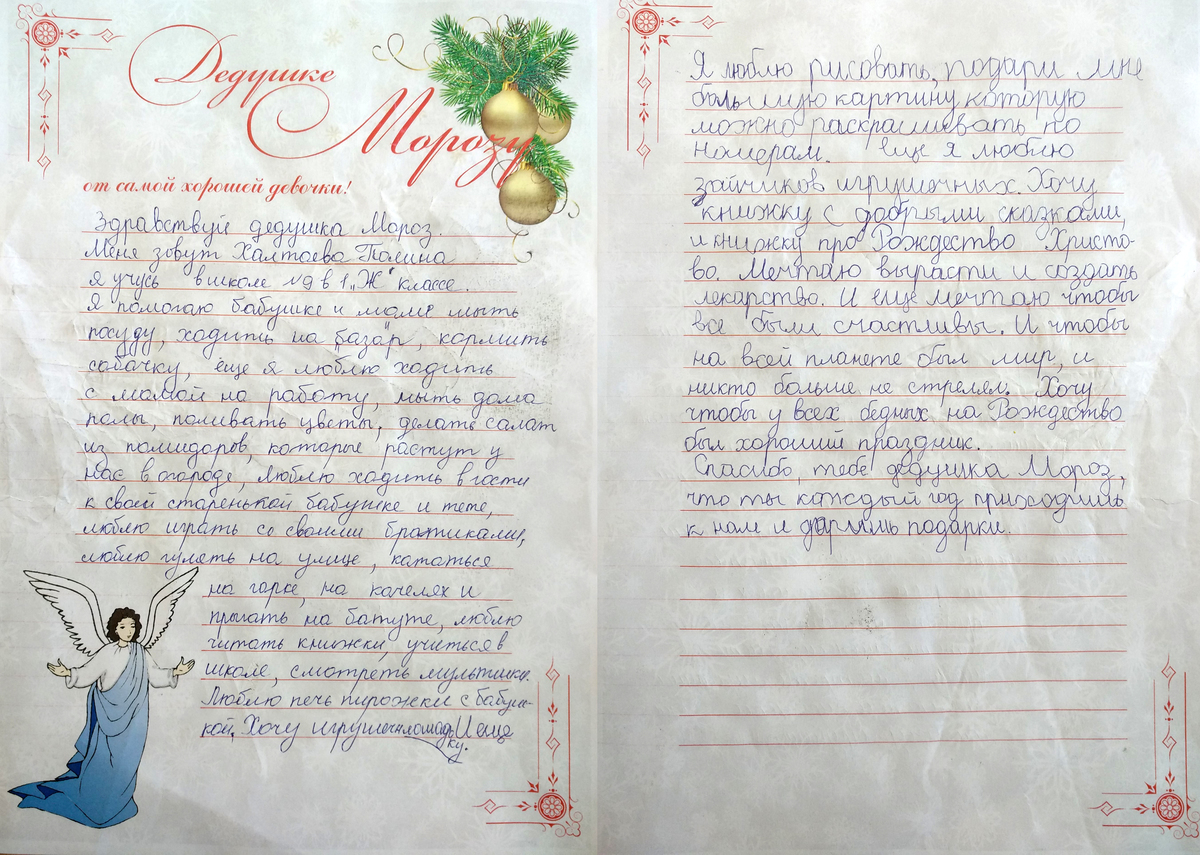 Дедушке
Морозу
от самой хорошей девочки!
Здравствуй дедушка Мороз.
Меня зовут Халтаева Полина
я учусь в школе №9 в 1 „Ж" классе.
Я помогаю бабушке и маме мыть
посуду, ходить на базар, кормить
собачку, еще я люблю ходить
с мамой на работу, мыть дома
полы, поливать цветы, делать салат
из помидоров, которые растут у
нас в огороде, люблю ходить в гости
к своей старенькой бабушке и тете,
люблю играть со своими братиками,
люблю гулять на улице, кататься
на горке, на качелях и
прыгать на батуте, люблю
читать книжки, учиться в
школе, смотреть мультики.
Люблю печь пирожки с бабуш-
кой. Хочу игрушечн лошад- И еще
ку.
Я люблю рисовать, подари мне
большую картину которую
можно раскрашивать по
номерам. еще я люблю
зайчиков игрушечных. Хочу
книжку с добрыми сказками,
и книжку про Рождество Христо-
во. Мечтаю вырасти и создать
лекарство. И еще мечтаю чтобы
все были счастливы. И чтобы
на всей планете был мир, и
никто больше не стрелял. Хочу
чтобы у всех бедных на Рождество
был хороший праздник.
Спасибо, тебе дедушка Мороз,
что ты каждый год приходишь
к нам и даришь подарки.